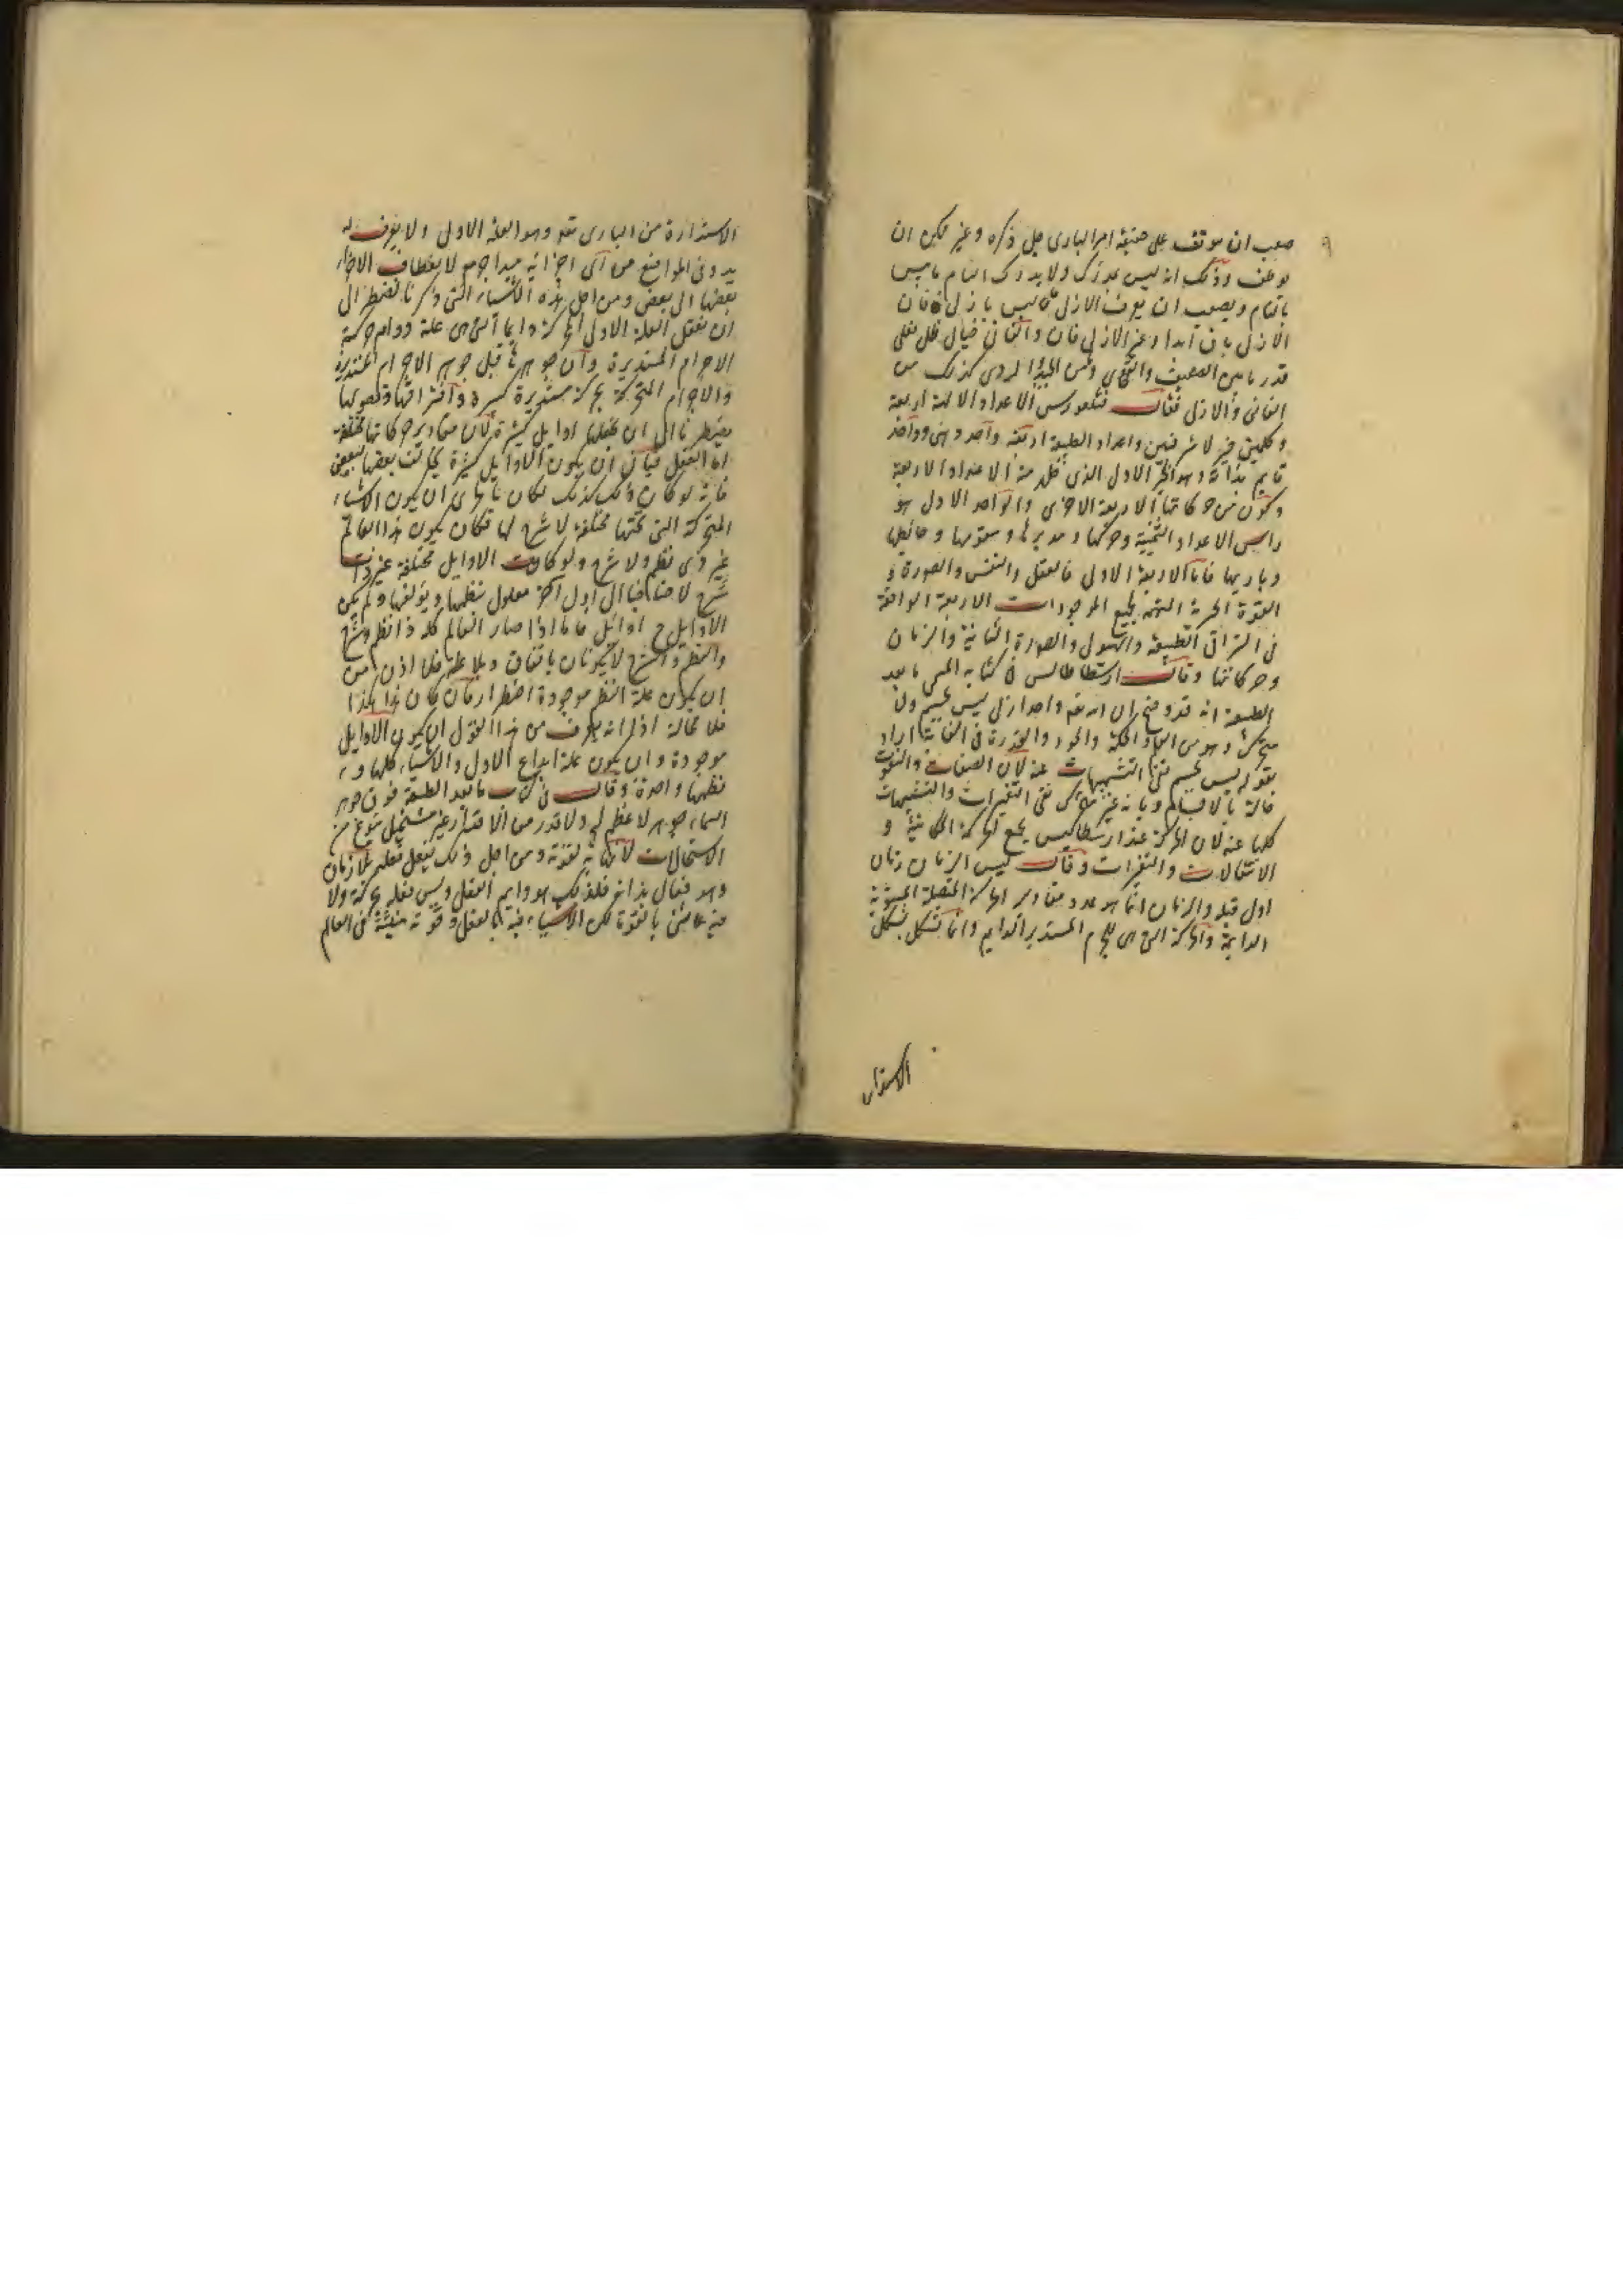 ٩
صعب ان يوقف على حقيقة امر البارى جل ذكره وغير ممكن ان
يوصف وذلك انه ليس بمدرك ولا يدرك التام ما ليس
بالتام ويصعب ان يعرف الازلى مما ليس بازلى فان
الازلى باق ابدا وغير الازلى فان والفانى خيال ظل فعلى
قدر ما بين الضعيف والقوى وبين الجيد الردى كذلك بين
الفانى والازلى فقالت الاعداد الالهية اربعة
واعداد الطبيعة اربعة واحد وهى وواحد
قايم بذاته وهو الخير الاول الذى ظهر منه الاعداد الاربعة
وتكون من حركاتها الاربعة الاخرى والواحد الاول هو
راس الاعداد الثمنية ومحركها ومدبرها ومقومها وحافظها
وباريها فاما الاربعة الاولى فالعقل والنفس والصورة و
القوة الحرية المتهمة بجميع الموجودات الاربعة الواقعة
فى الطبيعة والهيولى والصورة الثانية والزمان
وحركاتها وقال ارسطاطاليس فى كتابه المسمى ما بعد
الطبيعة انه قد وضح ان الله تعالى واحد ازلى ليس بجسم ولا
متحرك وهو من الحكمة والجود والقدرة فى الغاية اراد
بقوله ليس بجسم نفى التشبيهات عنه لان الصفات والنعوت
حالة بالاجسام وبانه غير متحرك نفى التغيرات والتشبيهات
كلها عنه لان الحركة عند ارسطاليس تجمع الحركة المكانية و
الانتقالات والتغيرات وقال ليس الزمان زمان
اول قبله والزمان انما هو عدد مقادير الحركة المتصلة المستوية
الدايمة والحركة التى هى للجرم المستدير الدايم وانما يشكل بشكل
الاستدارة
الاستدارة من البارى تعالى وهو العلة الاولى ولا يعرف له
بدو فى المواضع من اى اجزائه مبدا جرمه لانعطاف الاجزاء
بعضها الى بعض ومن اجل هذه الاشياء التى ذكرنا نضطر الى
ان نعقل العلة الاولى الحركة دايما التى هى علة دوام حركة
الاجرام المستديرة وان جوهرها قبل جوهر الاجرام المستديرة
والاجرام المتحركة بحركة مستديرة كثيرة وافتراقها وفصولها
يضطرنا الى ان نجعلها اوايل كثيرة لان مقادير حركاتها مختلفة
اما العقل فيابى ان يكون الاوايل كثيرة يخالف بعضها لبعض
فانه لو كان ذلك كذلك لكان بالحرى ان يكون الاشياء
المتحركة التى تحتها مختلفة لا شرح لها فكان يكون هذا العالم
غير ذى نظم ولا شرح ولو كانت الاوايل مختلفة غير ذات
شرح لاحتاجنا الى اول اخر معلول ينظمها ويؤلفها ولم يكن
الاوايل ح اوائل فاما اذا صار العالم كله ذا نظم وشرح
والنظم والشرح لا يكونان باتفاق وبلا علة فلا اذن من
ان يكون علة النظم موجودة اضطرارا فان كان هذا هكذا
فلا محالة اذا انه يعرف من هذا القول ان يكون الاوايل
موجودة وان يكون علة ابداع الاول والاشياء كلها و
نظمها واحدة وقال فى كتاب ما بعد الطبيعة فوق جوهر
السماء جوهر لا عظم له ولا قدر من الاقدار غير مستحيل بنوع من
الاستحالات لا نهاية لقوته ومن اجل ذلك يفعل فعله بلا زمان
وهو فعال بذاته فلذلك هو دايم الفعل وليس فعله بحركة ولا
فيه شئ بالقوة لكن الاشياء فيه بالفعل وقوته منبثة فى العالم